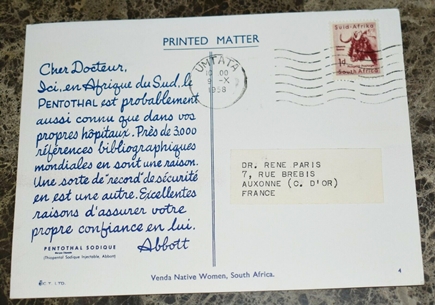 PRINTED MATTER
Cher Docteur,
Ici, en Afrique du Sud, le
PENTOTHAL est probablement
aussi connu que dans vos
propres hôpitaux. Près de 3000
références bibliographiques
mondiales en sont une raison.
Une sorte de "record" de sécurité
en est une autre. Excellentes
raisons d'assurer votre
propre confiance en lui.
Abbott
PENTOTHAL SODIQUE
(Thiopental Sodique Injectable, Abbott)
UMTATA
9 - X
1958
Suid-Afrika
1d
South Africa
DR. RENE PARIS
7, RUE BREBIS
AUXONNE (C. D'OR)
FRANCE
Venda Native Women, South Africa.
4